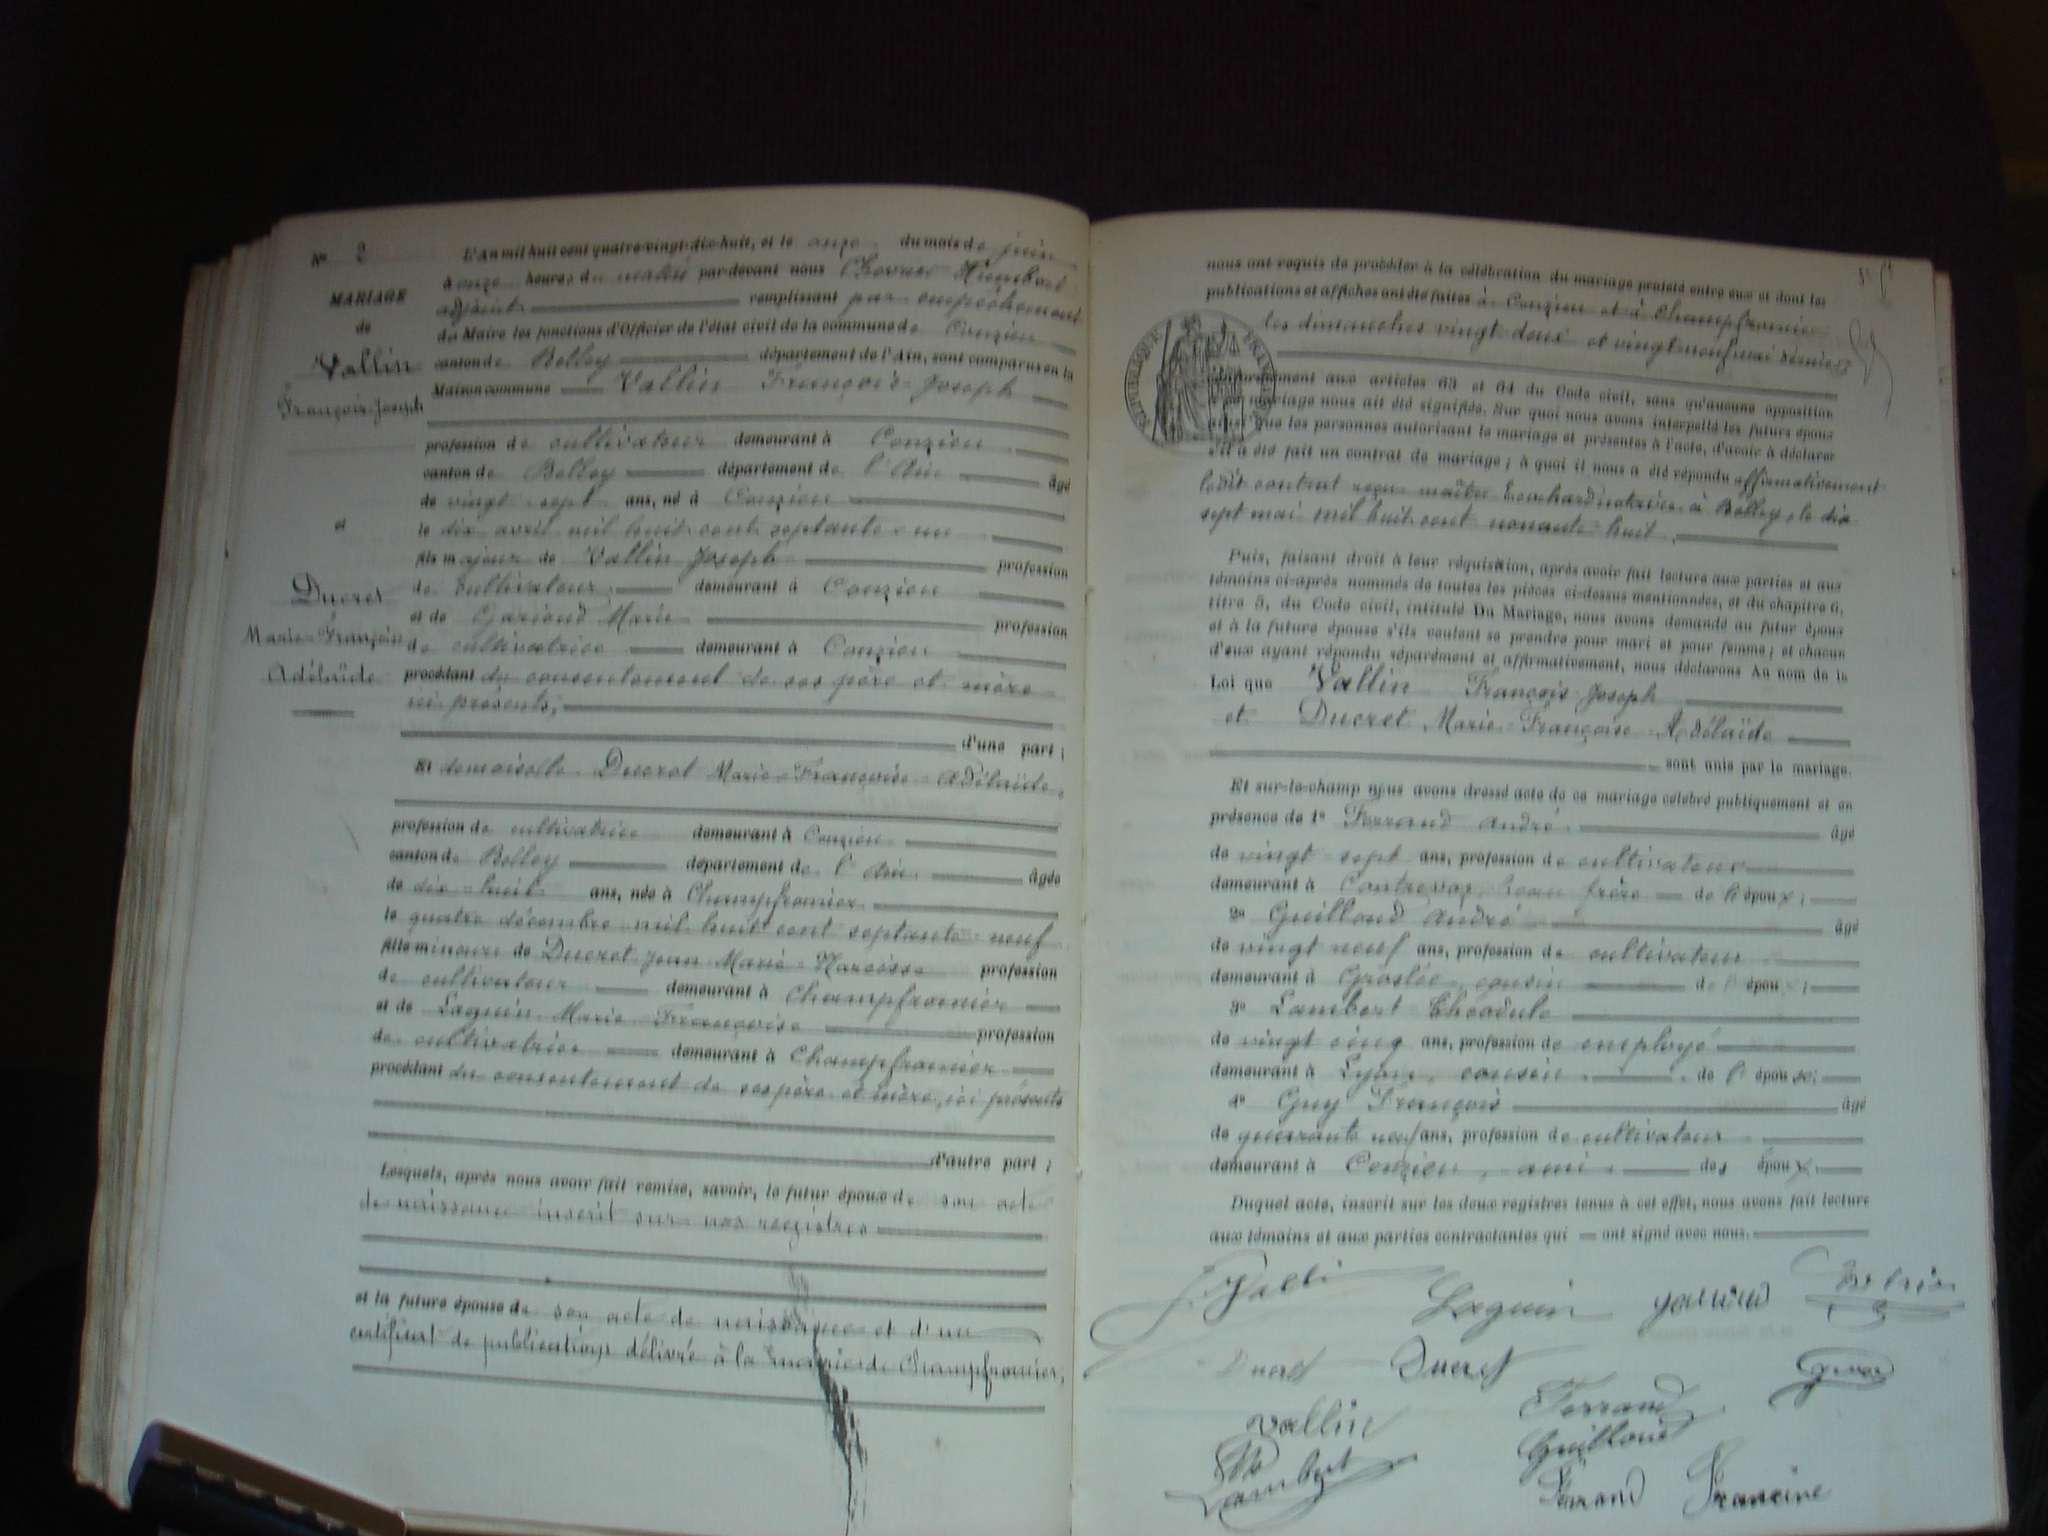 No 2
MARIAGE
de
Vallin
François-Joseph
et
Ducret
Marie-Françoise
Adélaïde
L'An mil huit cent quatre-vingt-dix-huit, et le onze du mois de juin
à onze heures du matin par-devant nous Humbert
adjoint remplissant par empêchement
du Maire les fonctions d'Officier de l'état civil de la commune de Conzieu
canton de Belley département de l'Ain, sont comparus en la
Maison commune Vallin François-Joseph
profession de cultivateur demeurant à Conzieu
canton de Belley département de l'Ain âgé
de vingt-sept ans, né à Conzieu
le dix avril mil huit cent septante-un
fils majeur de Vallin Joseph profession
de cultivateur demeurant à Conzieu
et de Marie profession
de cultivatrice demeurant à Conzieu
procédant du consentement de ses père et mère
ici présents,
d'une part;
Et demoiselle Ducret Marie-Françoise-Adélaïde,
profession de cultivatrice demeurant à Conzieu
canton de Belley département de l'Ain âgée
de dix-huit ans, née à Champfromier
le quatre décembre mil huit cent septante-neuf
fille mineure de Ducret Jean Marie-Narcisse profession
de cultivateur demeurant à Champfromier
et de Laguin Marie Françoise profession
de cultivatrice demeurant à Champfromier
procédant du consentement de ses père et mère, ici présents
d'autre part;
Lesquels, après nous avoir fait remise, savoir, le futur époux de son acte
de naissance inscrit sur nos registres
et la future épouse de son acte de naissance et d'un
certificat de publications délivré à la mairie de Champfromier,
nous ont requis de procéder à la célébration du mariage projeté entre eux et dont les
publications et affiches ont été faites à Conzieu et à Champfromier
les dimanches vingt deux et vingt-neuf mai derniers
RÉPUBLIQUE FRANÇAISE
conformément aux articles 63 et 64 du Code civil, sans qu'aucune opposition
mariage nous ait été signifiée. Sur quoi nous avons interpellé les futurs époux
ainsi que les personnes autorisant le mariage et présentes à l'acte, d'avoir à déclarer
s'il a été fait un contrat de mariage; à quoi il nous a été répondu affirmativement
ledit contrat reçu maître notaire à Belley, le dix
sept mai mil huit cent nonante-huit.
Puis, faisant droit à leur réquisition, après avoir fait lecture aux parties et aux
témoins ci-après nommés de toutes les pièces ci-dessus mentionnées, et du chapitre 6,
titre 5, du Code civil, intitulé Du Mariage, nous avons demandé au futur époux
et à la future épouse s'ils veulent se prendre pour mari et pour femme; et chacun
d'eux ayant répondu séparément et affirmativement, nous déclarons Au nom de la
Loi que Vallin François-Joseph
et Ducret Marie-Françoise-Adélaïde
sont unis par le mariage.
Et sur-le-champ nous avons dressé acte de ce mariage célébré publiquement et en
présence de 1o Ferrand André âgé
de vingt-sept ans, profession de cultivateur
demeurant à Contrevoz, beau frère de l'époux;
2o Guilloud André âgé
de vingt neuf ans, profession de cultivateur
demeurant à Groslée, cousin de l'époux;
3o Lambert Théodule
de vingt cinq ans, profession de employé
demeurant à Lyon, cousin de l'époux;
4o Guy François âgé
de quarante neuf ans, profession de cultivateur
demeurant à Conzieu, ami des époux.
Duquel acte, inscrit sur les deux registres tenus à cet effet, nous avons fait lecture
aux témoins et aux parties contractantes qui ont signé avec nous.
Laguin
Ducret Ducret
Vallin Ferrand
Guilloud
Lambert
Ferrand Francine